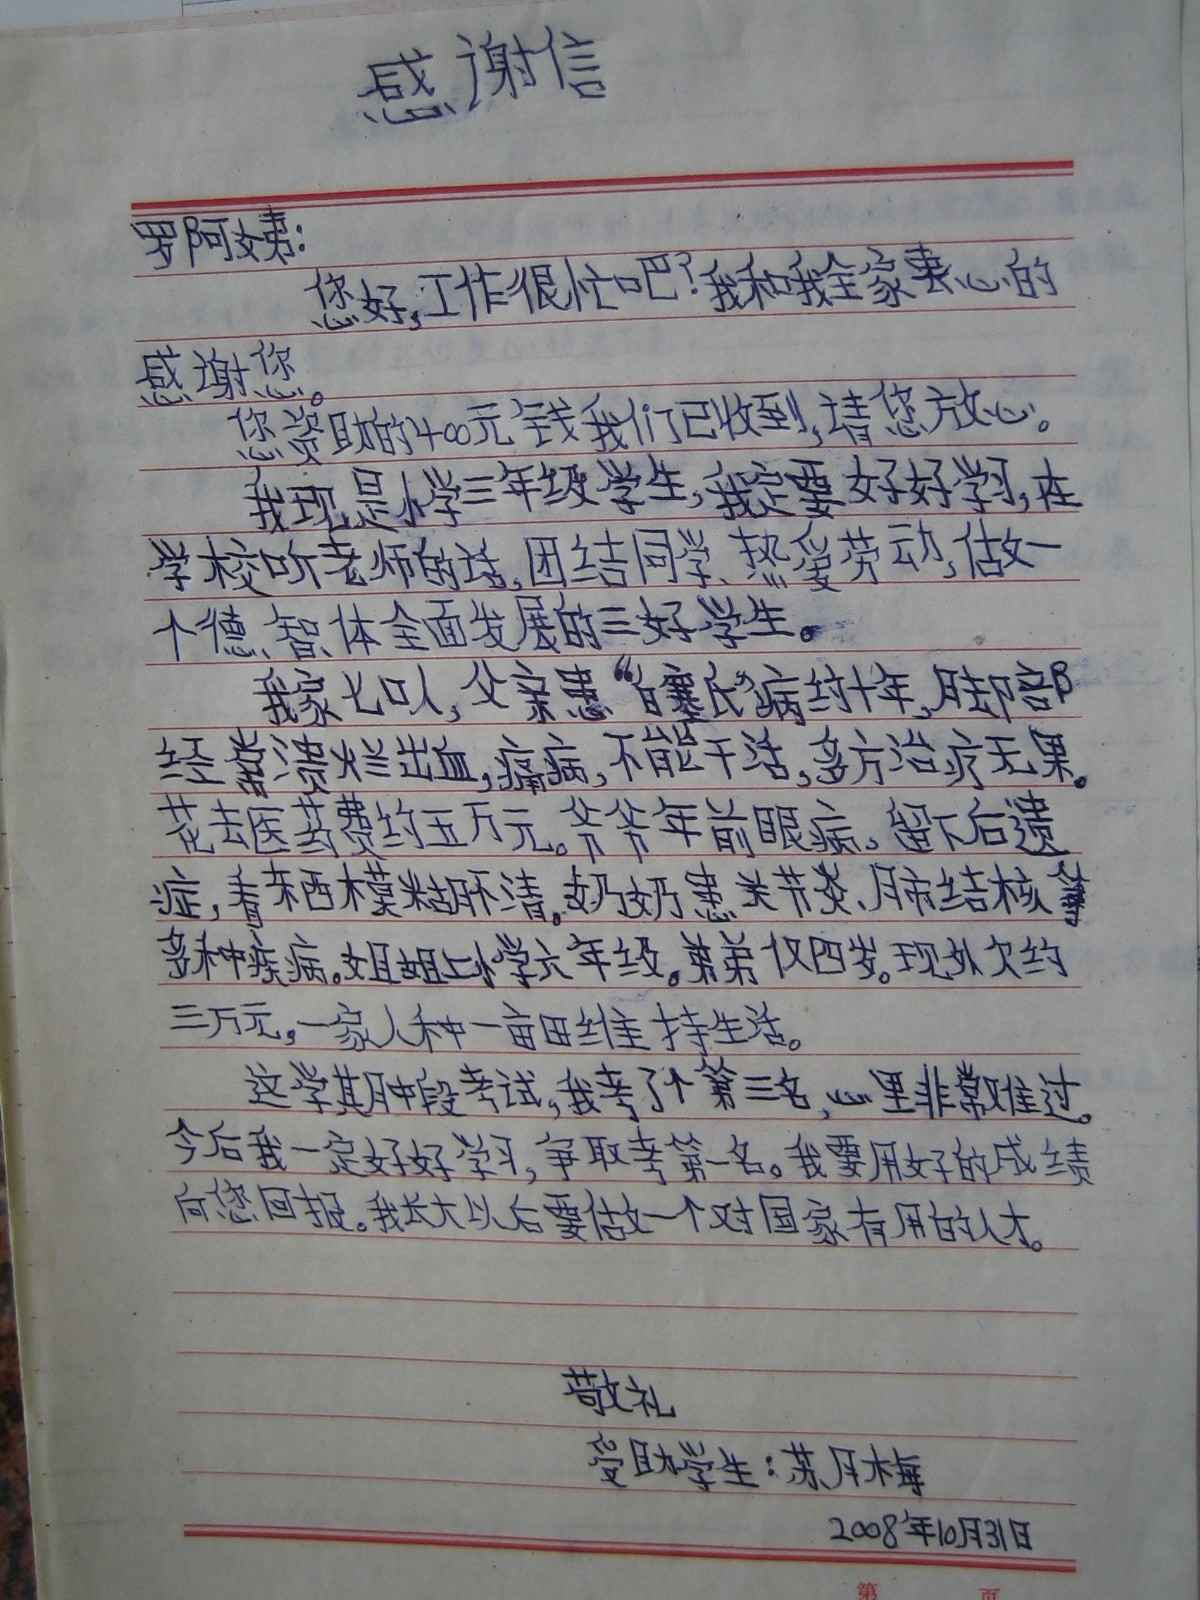 感谢信
罗阿姨:
您好,工作很忙吧?我和我全家衷心的
感谢您。
您资助的400元钱我们已收到,请您放心。
我现是小学三年级学生,我定要好好学习,在
学校听老师的话,团结同学、热爱劳动,做一
个德、智、体全面发展的三好学生。
我家七口人,父亲患“白塞氏”病约十年,脚部
经常溃烂出血,痛病,不能干活,多方治疗无果。
花去医药费约五万元。爷爷年前眼病,留下后遗
症,看东西模糊不清。奶奶患关节炎、肺结核等
多种疾病。姐姐上小学六年级。弟弟仅四岁。现外欠约
三万元,一家人种一亩田维持生活。
这学期中段考试,我考了个第三名,心里非常难过。
今后我一定好好学习,争取考第一名。我要用好的成绩
向您回报。我长大以后要做一个对国家有用的人才。
敬礼
受助学生:苏月梅
2008年10月31日
第 页